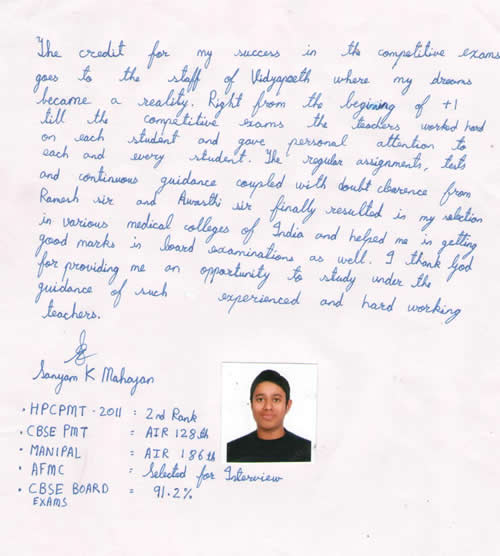 The credit for my success in the competitive exams
goes to the staff of Vidyapeeth where my dreams
became a reality. Right from the begining of +1
till the competitive exams the teachers worked hard
on each student and gave personal attention to
each and every student. The regular assignments, tests
and continuous guidance coupled with doubt clearence from
Ramesh sir and Awasthi sir finally resulted in my selection
in various medical colleges of India and helped me in getting
good marks in board examinations as well. I thank God
for providing me an opportunity to study under the
guidance of such experienced and hard working
teachers.
Sanyam K Mahajan
• HPCPMT - 2011 : 2nd Rank
• CBSE PMT = AIR 128th
• MANIPAL = AIR 186th
• AFMC = Selected for Interview
• CBSE BOARD = 91.2%
EXAMS